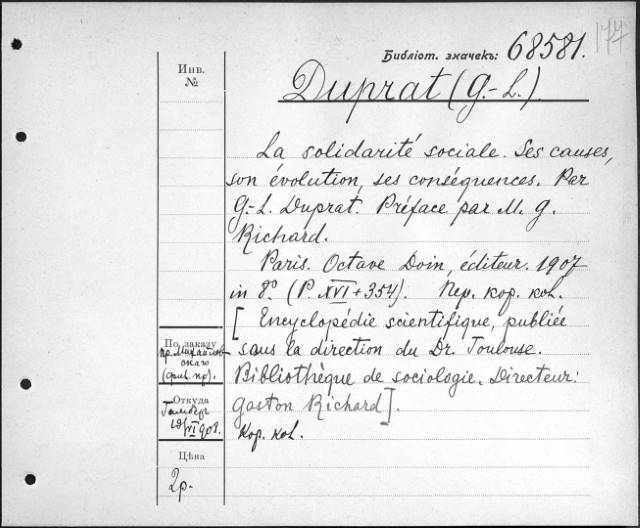 177
Библіот. значекъ: 68581.
Инв.
№
Duprat (G.-L.).
La solidarité sociale. Ses causes,
son évolution, ses conséquences. Par
G.-L. Duprat. Préface par M. G.
Richard.
Paris. Octave Doin, éditeur. 1907
in 8º. (P. XVI + 354). Пер. кор. кол.
[Encyclopédie scientifique, publiée
sous la direction du Dr. Toulouse.
Bibliothèque de sociologie. Directeur:
Gaston Richard].
Кор. кол.
По заказу
пр. Михайлов-
скаго
Откуда
VI 908.
Цѣна
2р.